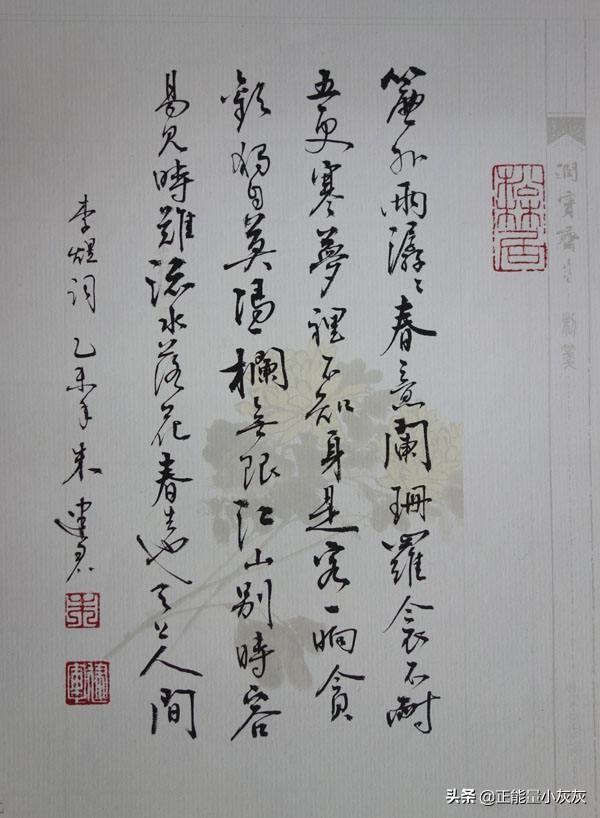 簾外雨潺々春意闌珊羅衾不耐
五更寒夢裡不知身是客一晌貪
歡獨自莫憑欄無限江山別時容
易見時難流水落花春去也天上人間
李煜詞乙未年朱建
朱
头条 @正能量小灰灰